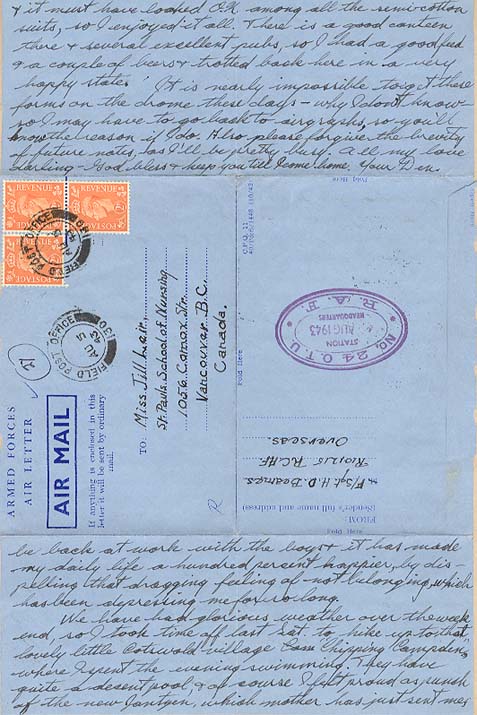 & it must have looked O.K. among all the semi-cotton
suits, so I enjoyed it all. There is a good canteen
there & several excellent pubs, so I had a good feed
& a couple of beers & trotted back here in a very
happy state. It is nearly impossible to get these
forms on the drome these days - why I don't know -
so I may have to go back to airgraphs, so you'll
know the reason if I do. Also please forgive the brevity
of future notes, as I'll be pretty busy. All my love
darling - God bless & keep you till I come home, Your Den.
POSTAGE REVENUE
POSTAGE REVENUE
POSTAGE REVENUE
FIELD POST OFFICE
FIELD POST OFFICE
130
AU
43
ARMED FORCES
AIR LETTER
AIR MAIL
If anything is enclosed in this
letter it will be sent by ordinary
mail.
TO:
Miss Jill Lair,
St. Pauls School of Nursing
1056 Comox Str.
Vancouver B.C.
Canada.
Fold Here
No. 24 O.T.U.
STATION
AUG 1943
HEADQUARTERS
R.A.F.
FROM:
(Sender's full name and address)
F/Sgt H.D. Beames
R.C.A.F.
Overseas.
be back at work with the boys & it has made
my daily life a hundred percent happier, by dis-
pelling that dragging feeling of not belonging, which
has been depressing me for so long.
We have had glorious weather over the week
end, so I took time off last Sat. to hike up to that
lovely little Cotswold village Cam Chipping Campden,
where I spent the evening swimming. They have
quite a decent pool, & of course I felt proud as punch
of the new Jantzen, which mother has just sent me,